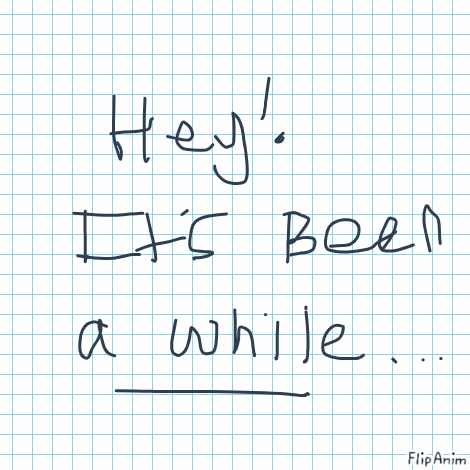 Hey!
It's Been
a while...
FlipAnim